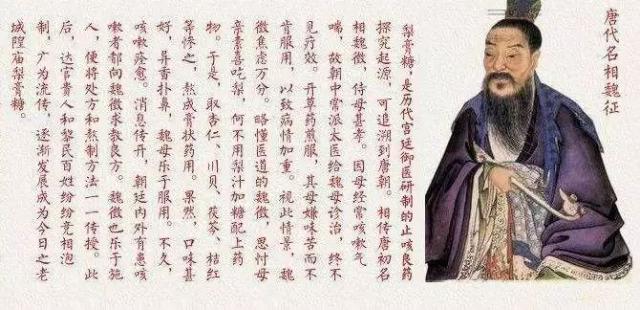 唐代名相魏征
梨膏糖,是历代宫廷御医研制的止咳良药
探究起源,可追溯到唐朝。相传唐初名
相魏徵,侍母甚孝。因母经常咳嗽气
喘,故朝中常派太医给魏母诊治,终不
见疗效。开草药煎服,其母嫌味苦而不
肯服用,以致病情加重。视此情景,魏
徵焦虑万分。略懂医道的魏徵,思忖母
亲素喜吃梨,何不用梨汁加糖配上药
物。于是,取杏仁、川贝、茯苓、桔红
等修之,熬成膏状药用。果然,口味甚
好,异香扑鼻,魏母乐于服用。不久,
咳嗽痊愈。消息传开,朝廷内外有患咳
嗽者都向魏徵求教良方。魏徵也乐于施
人,便将处方和熬制方法一一传授。此
后,达官贵人和黎民百姓纷纷竞相泡
制,广为流传,逐渐发展成为今日之老
城隍庙梨膏糖。